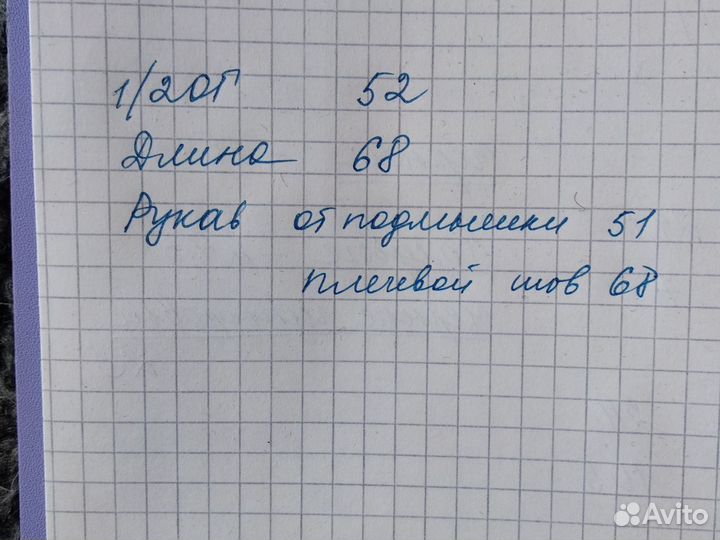 1/2 ОГ 52
Длина 68
Рукав от подмышки 51
плечевой шов 68
Avito